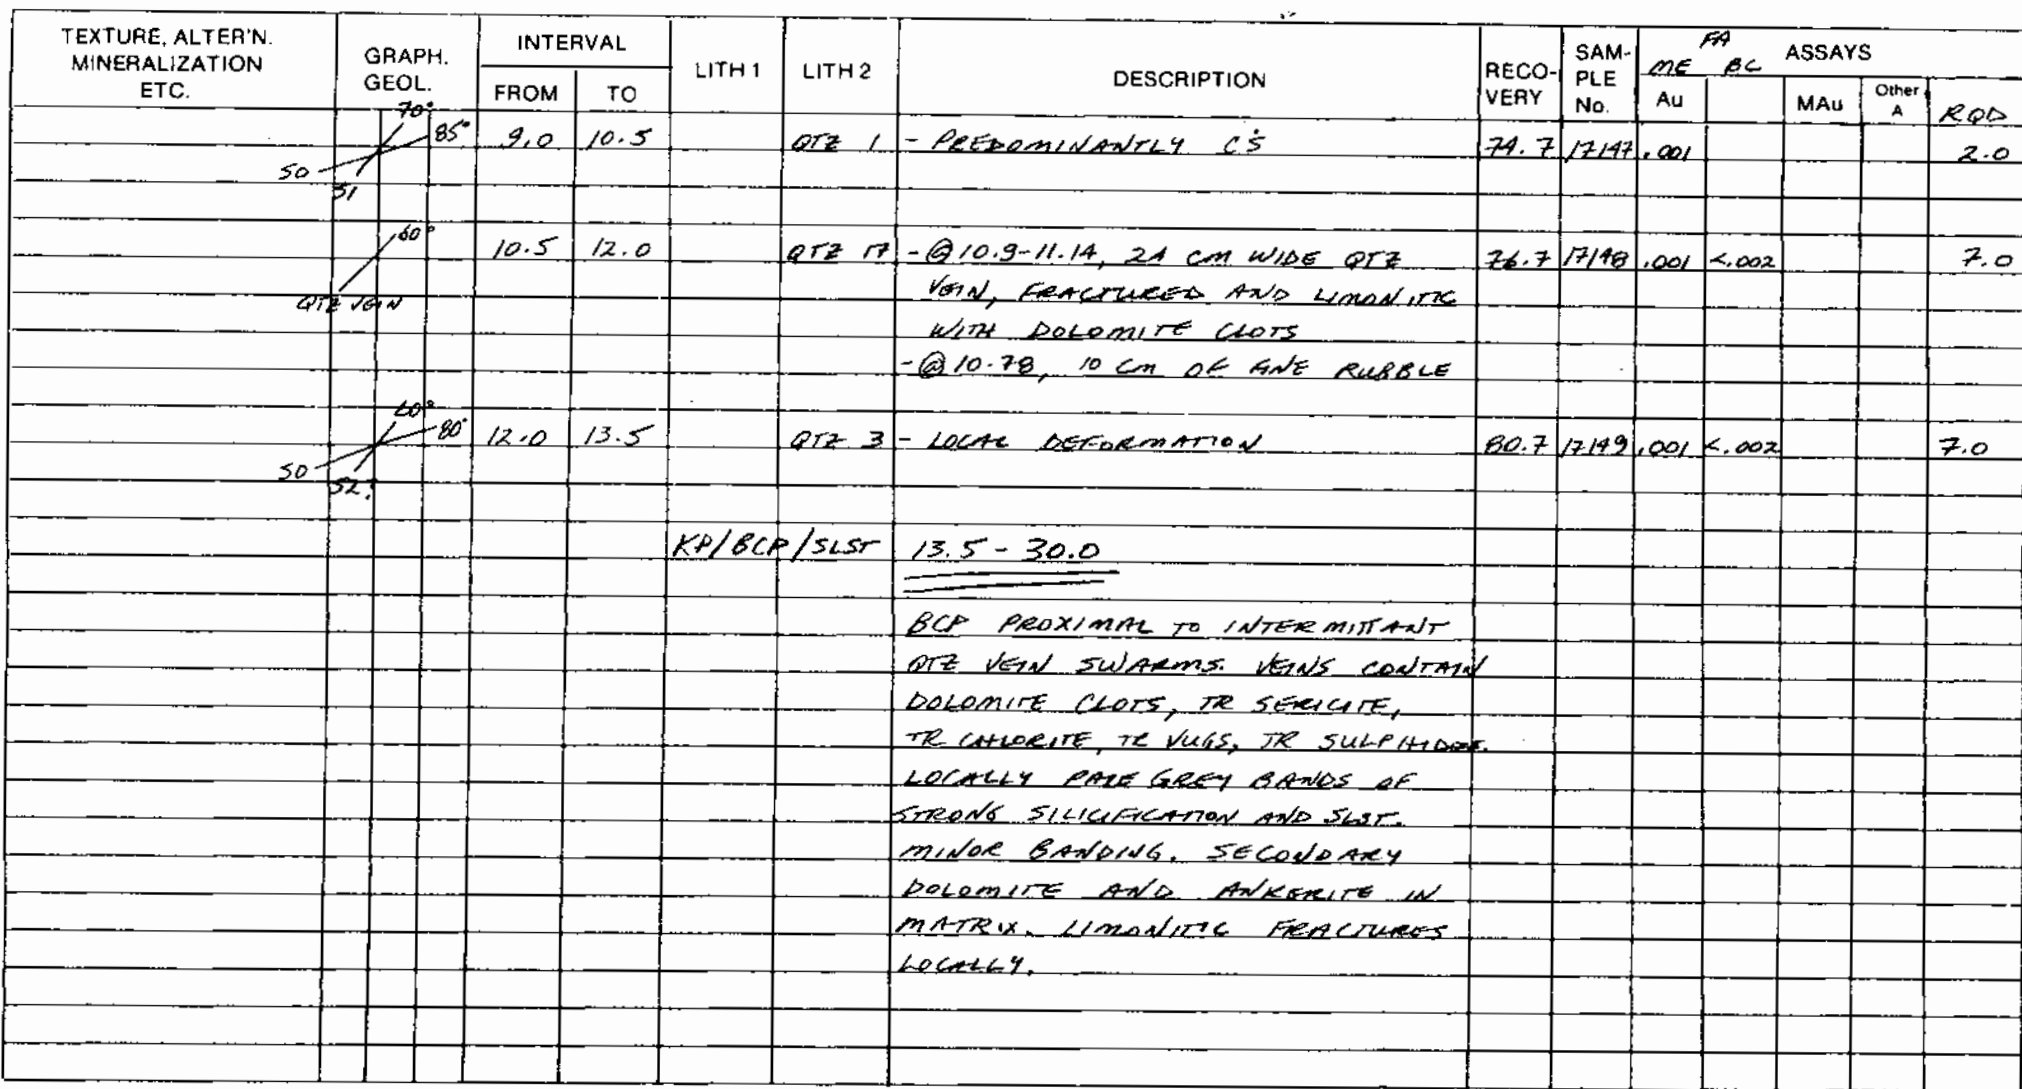 TEXTURE, ALTER'N. MINERALIZATION ETC. GRAPH. GEOL. INTERVAL FROM TO LITH 1 LITH 2 DESCRIPTION RECO-VERY SAM-PLE No. FA ME BC ASSAYS Au MAu Other A RQD
70° 85° 9.0 10.5 QTZ 1 - PREDOMINANTLY C'S 74.7 17147 .001 2.0
S0
S1
60° 10.5 12.0 QTZ 17 - @ 10.9-11.14, 24 CM WIDE QTZ 76.7 17148 .001 <.002 7.0
QTZ VEIN VEIN, FRACTURED AND LIMONITIC
WITH DOLOMITE CLOTS
- @ 10.78, 10 cm OF FINE RUBBLE
60° 80° 12.0 13.5 QTZ 3 - LOCAL DEFORMATION 80.7 17149 .001 <.002 7.0
S0
S2
KP/BCP/SLST 13.5 - 30.0
BCP PROXIMAL TO INTERMITTANT
QTZ VEIN SWARMS. VEINS CONTAIN
DOLOMITE CLOTS, TR SERICITE,
TR CHLORITE, TR VUGS, TR SULPHIDES.
LOCALLY PALE GREY BANDS OF
STRONG SILICIFICATION AND SLST.
MINOR BANDING. SECONDARY
DOLOMITE AND ANKERITE IN
MATRIX. LIMONITIC FRACTURES
LOCALLY.